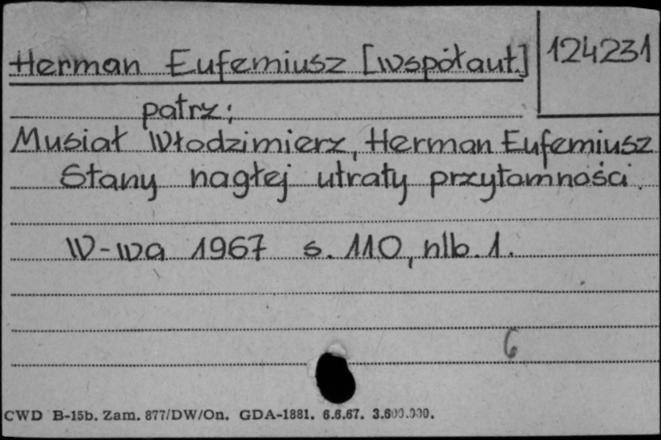 Herman Eufemiusz [współaut.]
124231
patrz:
Musiał Włodzimierz, Herman Eufemiusz
Stany nagłej utraty przytomności.
W-wa 1967 s. 110, nlb. 1.
6
CWD B-15b. Zam. 877/DW/On. GDA-1881. 6.6.67. 3.600.000.